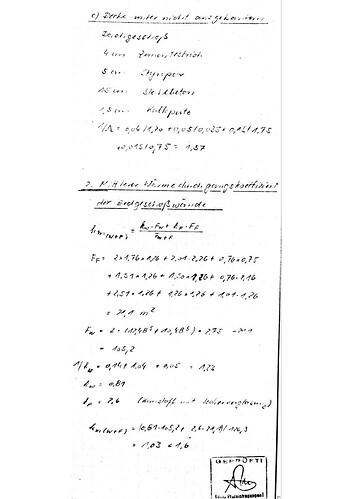 c) Decke unter nicht ausgebautem
Dachgeschoß
4 cm Zementestrich
5 cm Styropor
15 cm Stahlbeton
1,5 cm Kalkputz
1/Λ = 0,04/1,20 + 0,05/0,035 + 0,15/1,75
+ 0,015/0,75 = 1,57
2. Mittlerer Wärmedurchgangskoeffizient
der Erdgeschoßwände
km(W+F) = kW · FW + kF · FF
FW + FF
FF = 2 × 1,76 × 1,26 + 2,01 · 2,26 + 0,76 × 0,75
+ 1,51 × 1,26 + 1,50 × 1,26 + 0,76 · 2,16
+ 2,51 × 1,26 + 1,26 × 1,26 + 1,01 · 1,26
= 21,1 m²
FW = 2 · (12,48⁵ + 10,48⁵) × 2,75 - 21,1
= 105,2
1/kW = 0,14 + 1,04 + 0,05 = 1,23
kW = 0,81
kF = 2,6 (Kunstoff mit Isolierverglasung)
km(W+F) = (0,81 · 105,2 + 2,6 · 21,1)/126,3
= 1,03 < 1,6
GEPRÜFT!